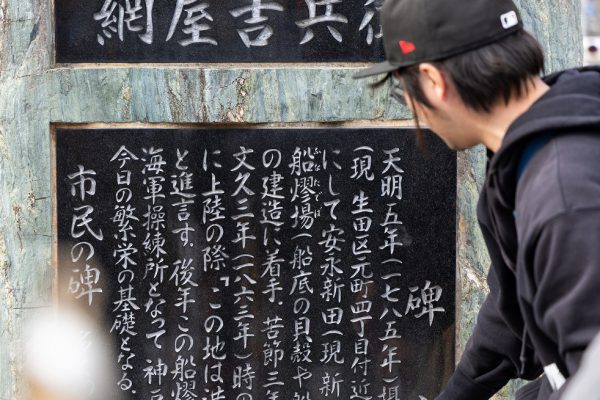 網屋吉兵衛
碑
天明五年(一七八五年)
(現 生田区元町四丁目付近
にして安永新田(現 新
船熮場(船底の貝殻や船
ふなたでば
の建造に着手、苦節三年
文久三年(一八六三年)時の
に上陸の際「この地は
と進言す。後年この船熮
海軍操練所となって神戸
今日の繁栄の基礎となる。
市民の碑